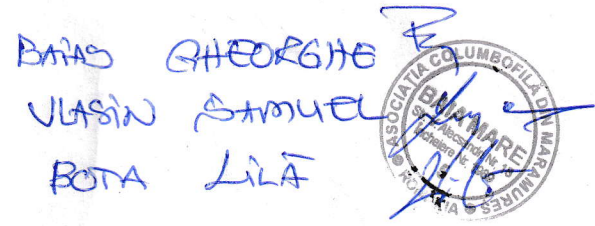 BAIAS GHEORGHE
VLASIN SAMUEL
BOTA LILĂ
ASOCIATIA COLUMBOFILĂ DIN MARAMURES
BAIA MARE
Str. V. Alecsandri Nr.
ROMANIA